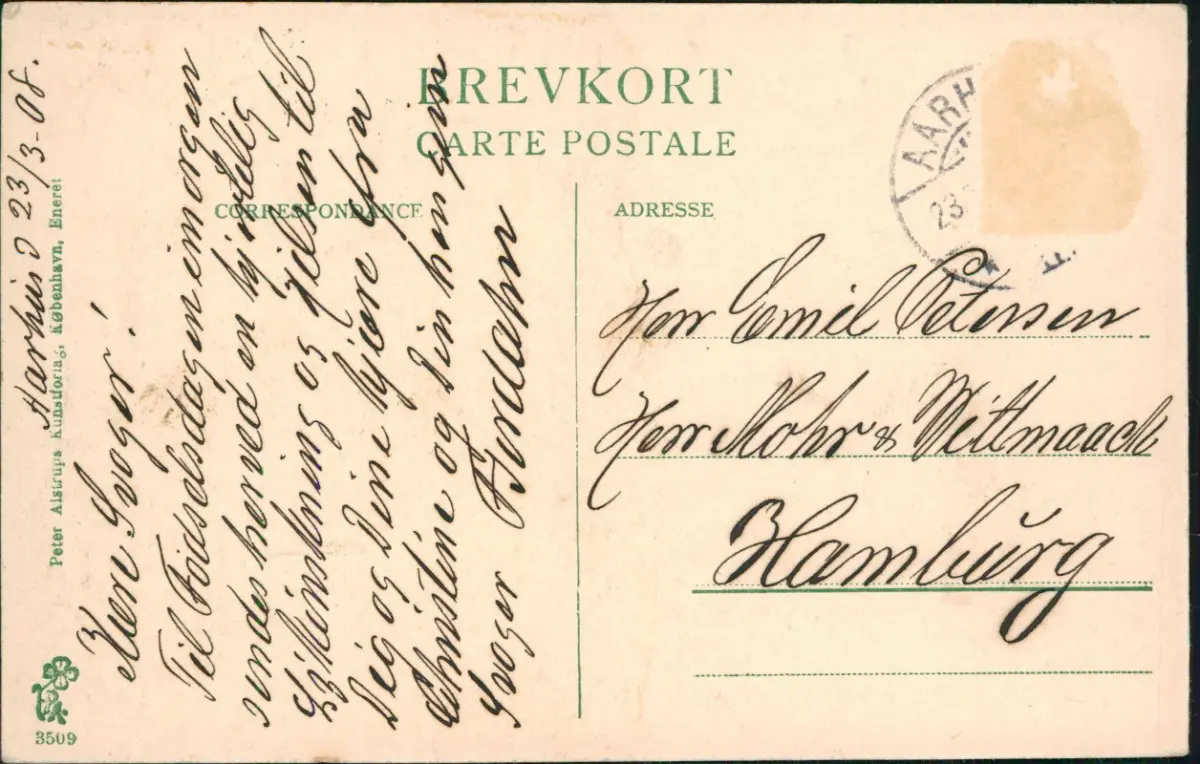 BREVKORT
CARTE POSTALE
CORRESPONDANCE
ADRESSE
AARH
23
Aarhus d 23/3-08.
Kære Svoger!
Til Fødselsdagen imorgen
sendes herved en hjertelig
Lykønskning og Hilsen til
Dig og Dine kjære fra
Christine og Din hengivn
Svoger Ferdahn
Herr Emil Petersen
Herr Mohr & Wittmaack
Hamburg
Peter Alstrups Kunstforlag, København, Eneret
3509